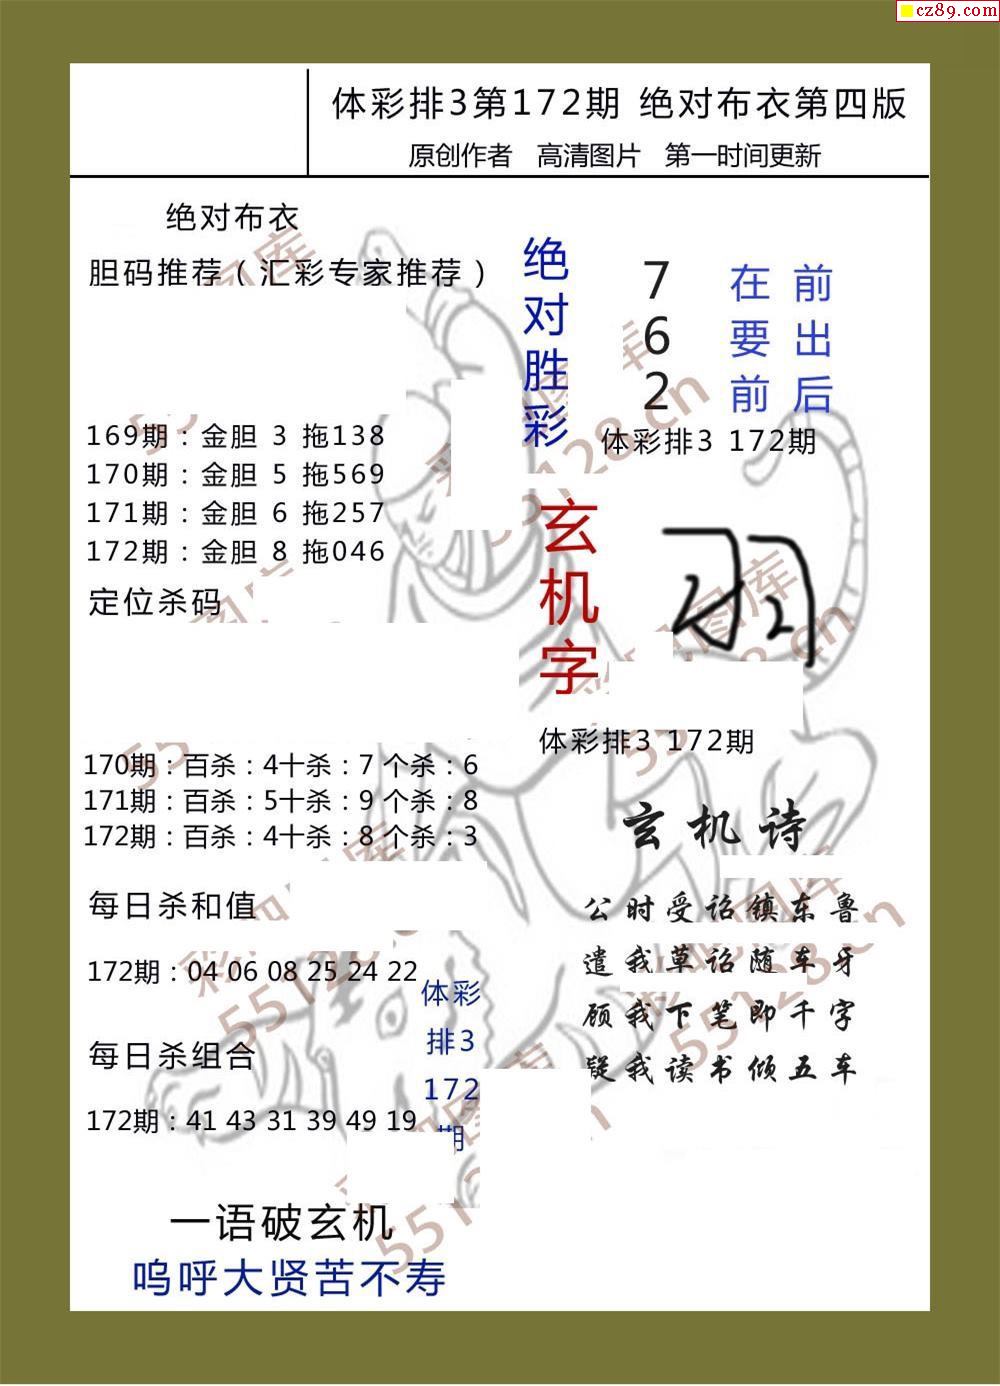 cz89.com
体彩排3第172期 绝对布衣第四版
原创作者 高清图片 第一时间更新
绝对布衣
胆码推荐（汇彩专家推荐）
169期：金胆 3 拖138
170期：金胆 5 拖569
171期：金胆 6 拖257
172期：金胆 8 拖046
定位杀码
170期：百杀：4十杀：7 个杀：6
171期：百杀：5十杀：9 个杀：8
172期：百杀：4十杀：8 个杀：3
每日杀和值
172期：04 06 08 25 24 22
每日杀组合
172期：41 43 31 39 49 19
体彩
排3
172
期
一语破玄机
呜呼大贤苦不寿
绝对胜彩
7 在 前
6 要 出
2 前 后
体彩排3 172期
玄机字
羽
体彩排3 172期
玄机诗
公时受诏镇东鲁
遣我草诏随车牙
顾我下笔即千字
疑我读书倾五车